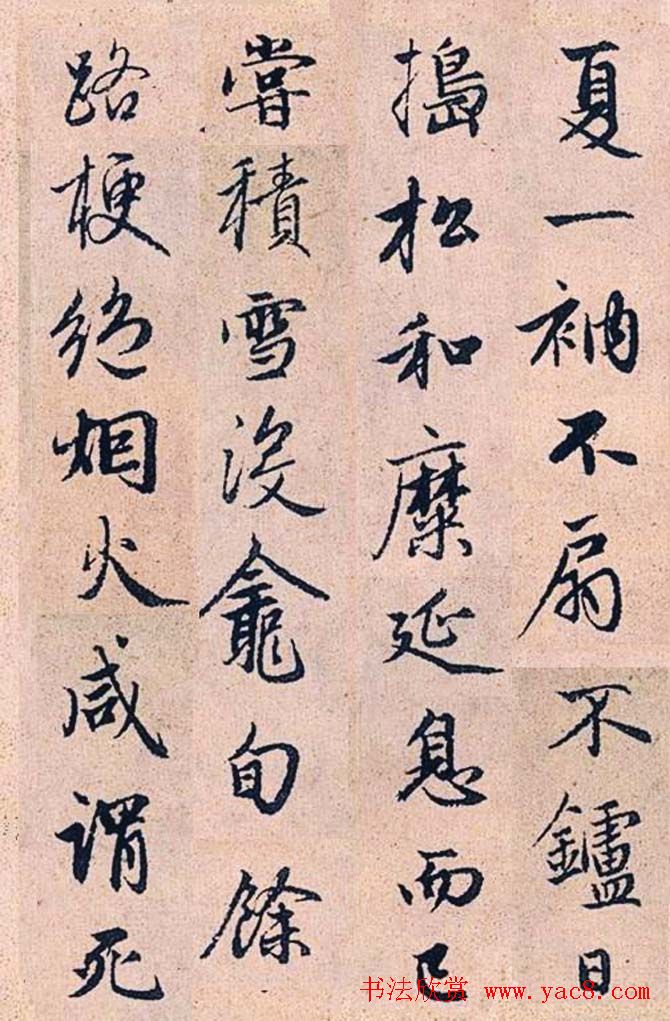 夏一衲不扇不鑪日
搗松和糜延息而已
嘗積雪沒龕旬餘
路梗絕烟火咸謂死
书法欣赏 www.yac8.com